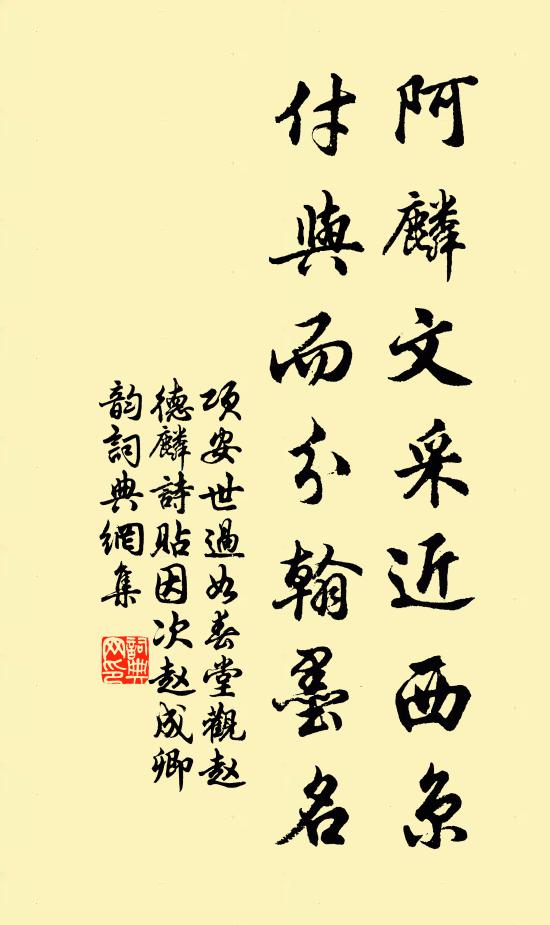 阿麟文采近西京
付與而分翰墨名
項安世過如春堂觀赵
德麟詩貼因次赵成卿
韵詞典網集
詞典
网印